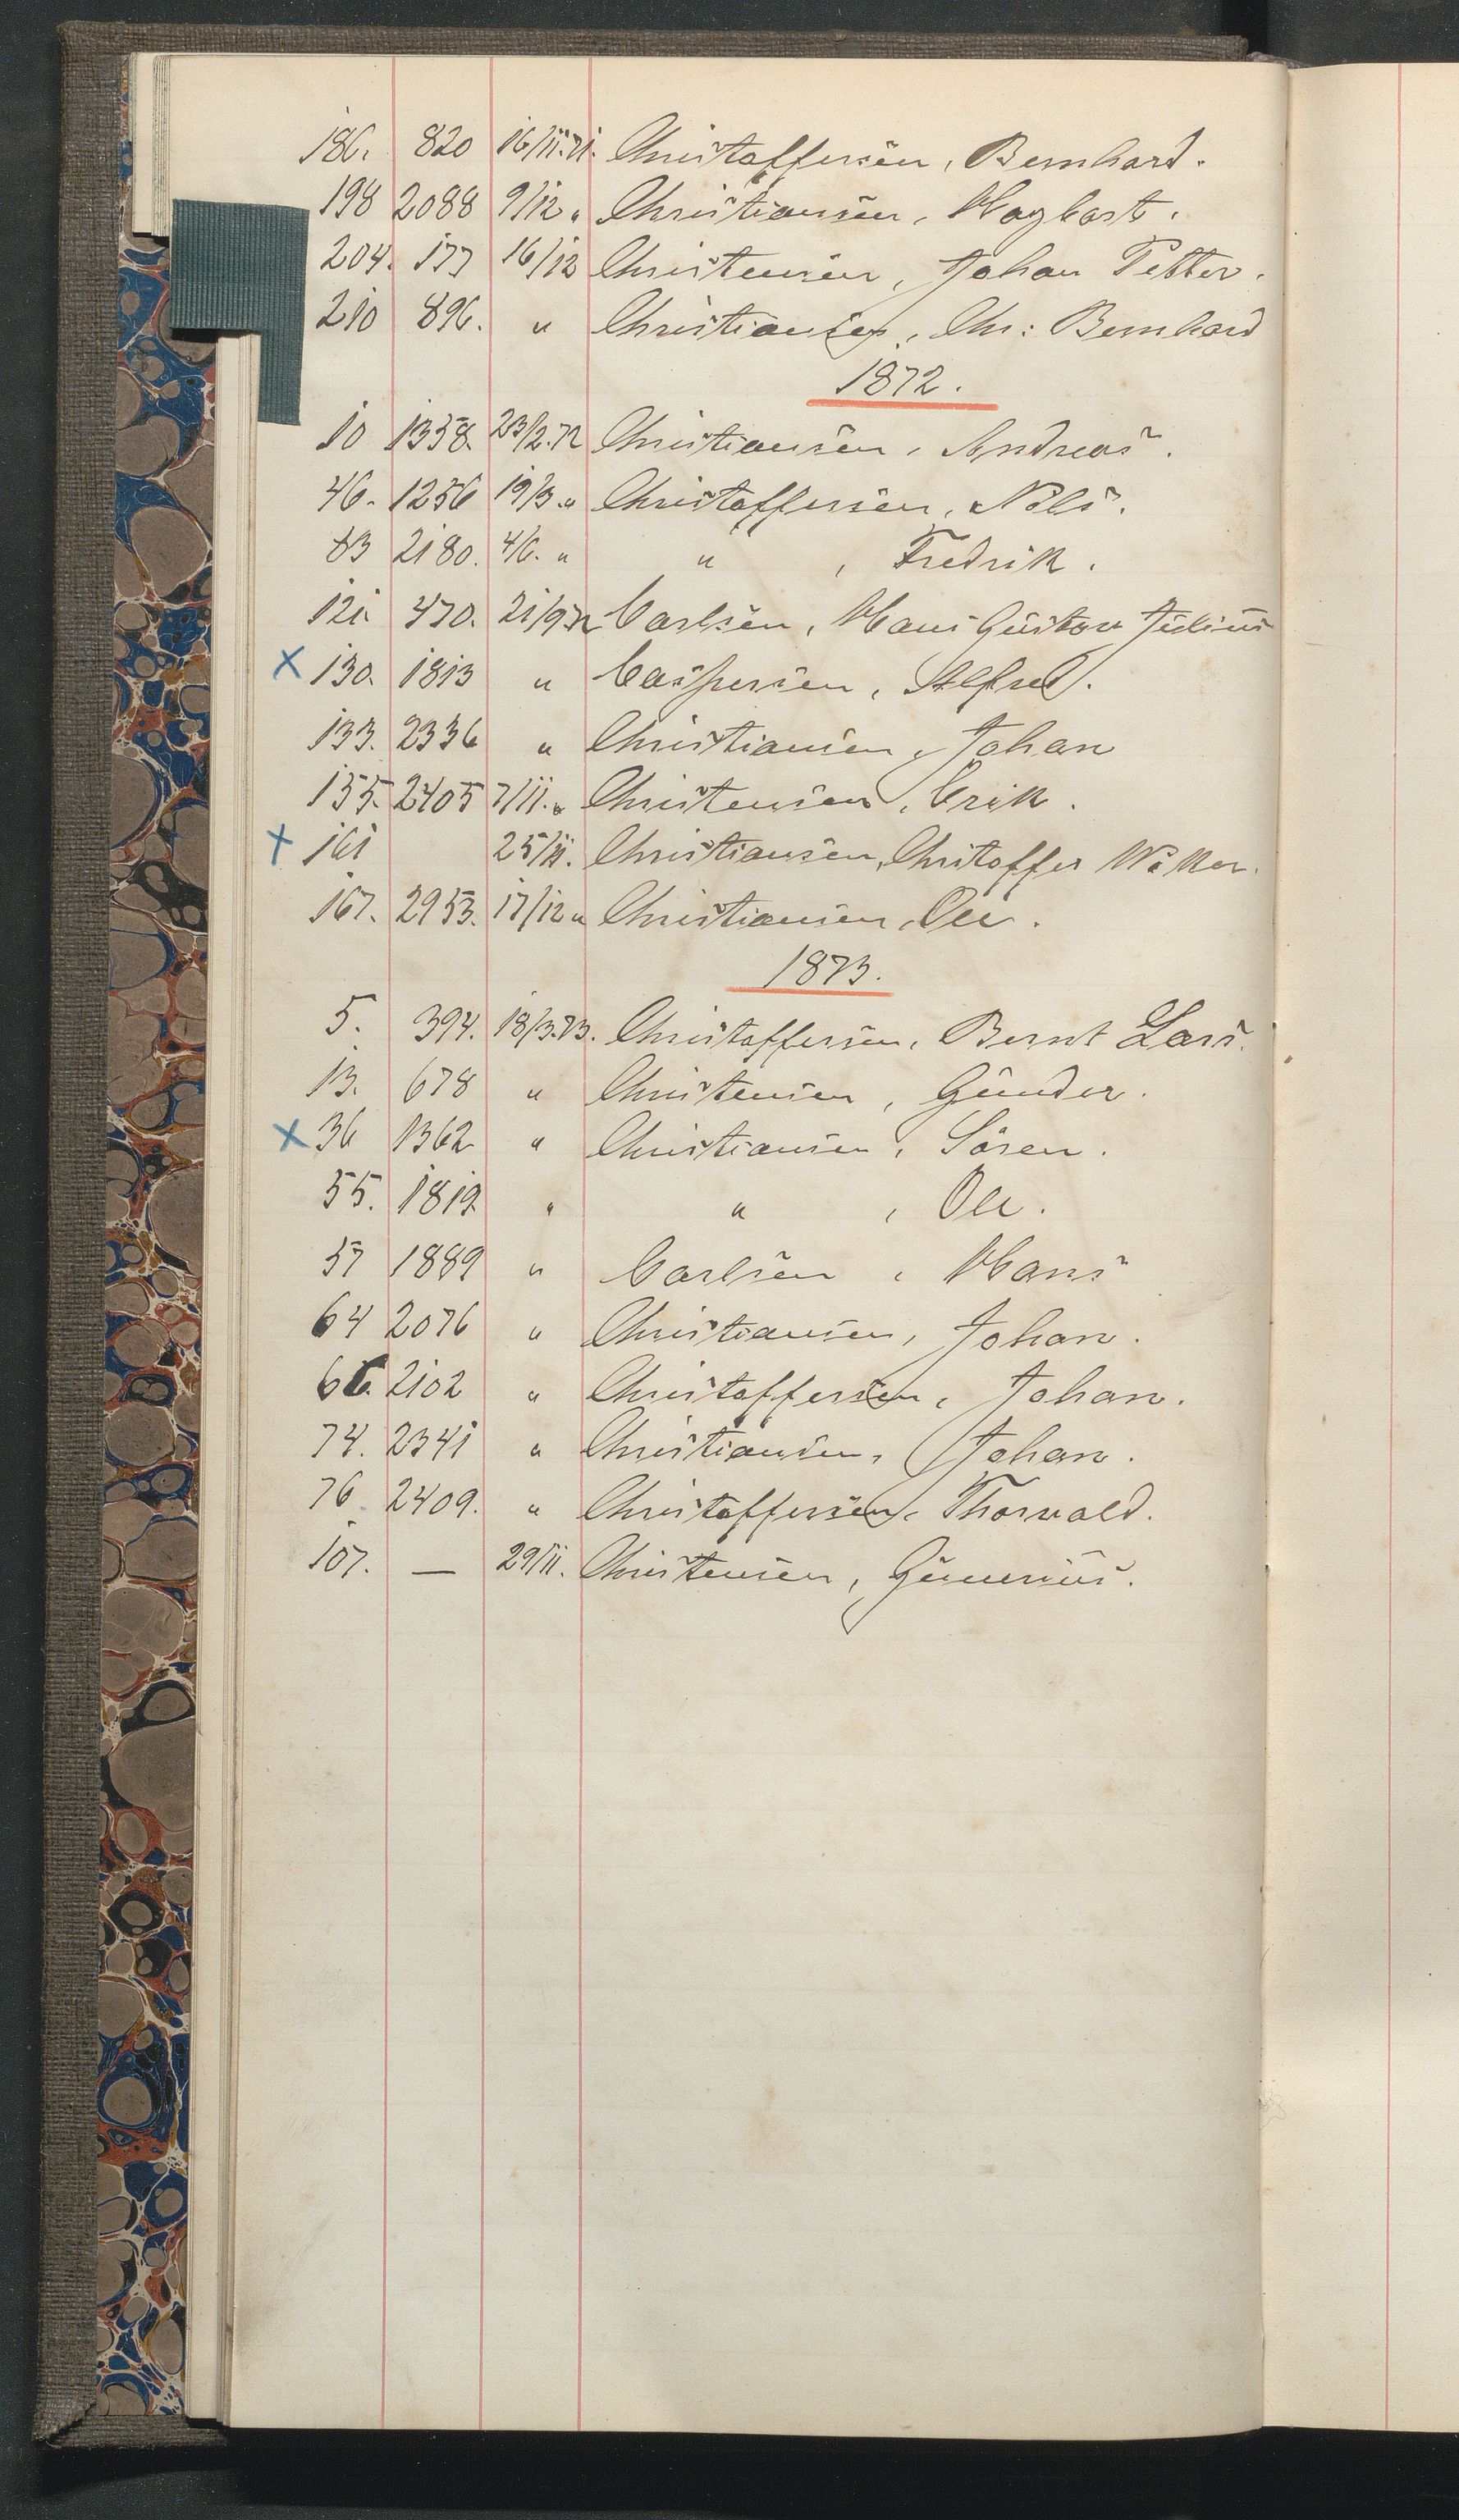 186. 820 16/11.71. Christoffersen, Bernhard.
198 2088 9/12 " Christiansen, Hagbart.
204. 177 16/12 Christensen, Johan Petter.
210 896. " Christiansen, Chr: Bernhard
1872.
10 1358. 23/2.72 Christiansen, Andreas.
46. 1256 19/3 " Christoffersen, Nils.
83 2180. 4/6. " " , Fredrik.
121. 470. 21/9.72 Carlsen, Hans Gustav Julius
x 130. 1813 " Caspersen, Alfred.
133. 2336 " Christiansen, Johan
155. 2405 7/11. " Christensen, Erik.
x 161 25/11. Christiansen, Chritoffer
167. 2953. 17/12 " Christiansen, Ole.
1873.
5. 394. 18/3.73. Christoffersen, Bernt Lars.
13. 678 " Christensen, Gunder.
x 36 1362 " Christiansen, Sören.
55. 1819. " " , Ole.
57 1889 " Carlsen, Hans
64 2076 " Christiansen, Johan.
66. 2102 " Christoffersen, Johan.
74. 2341 " Christiansen, Johan.
76. 2409. " Christoffersen, Thorvald.
107. — 29/11. Christensen, Gunerius.